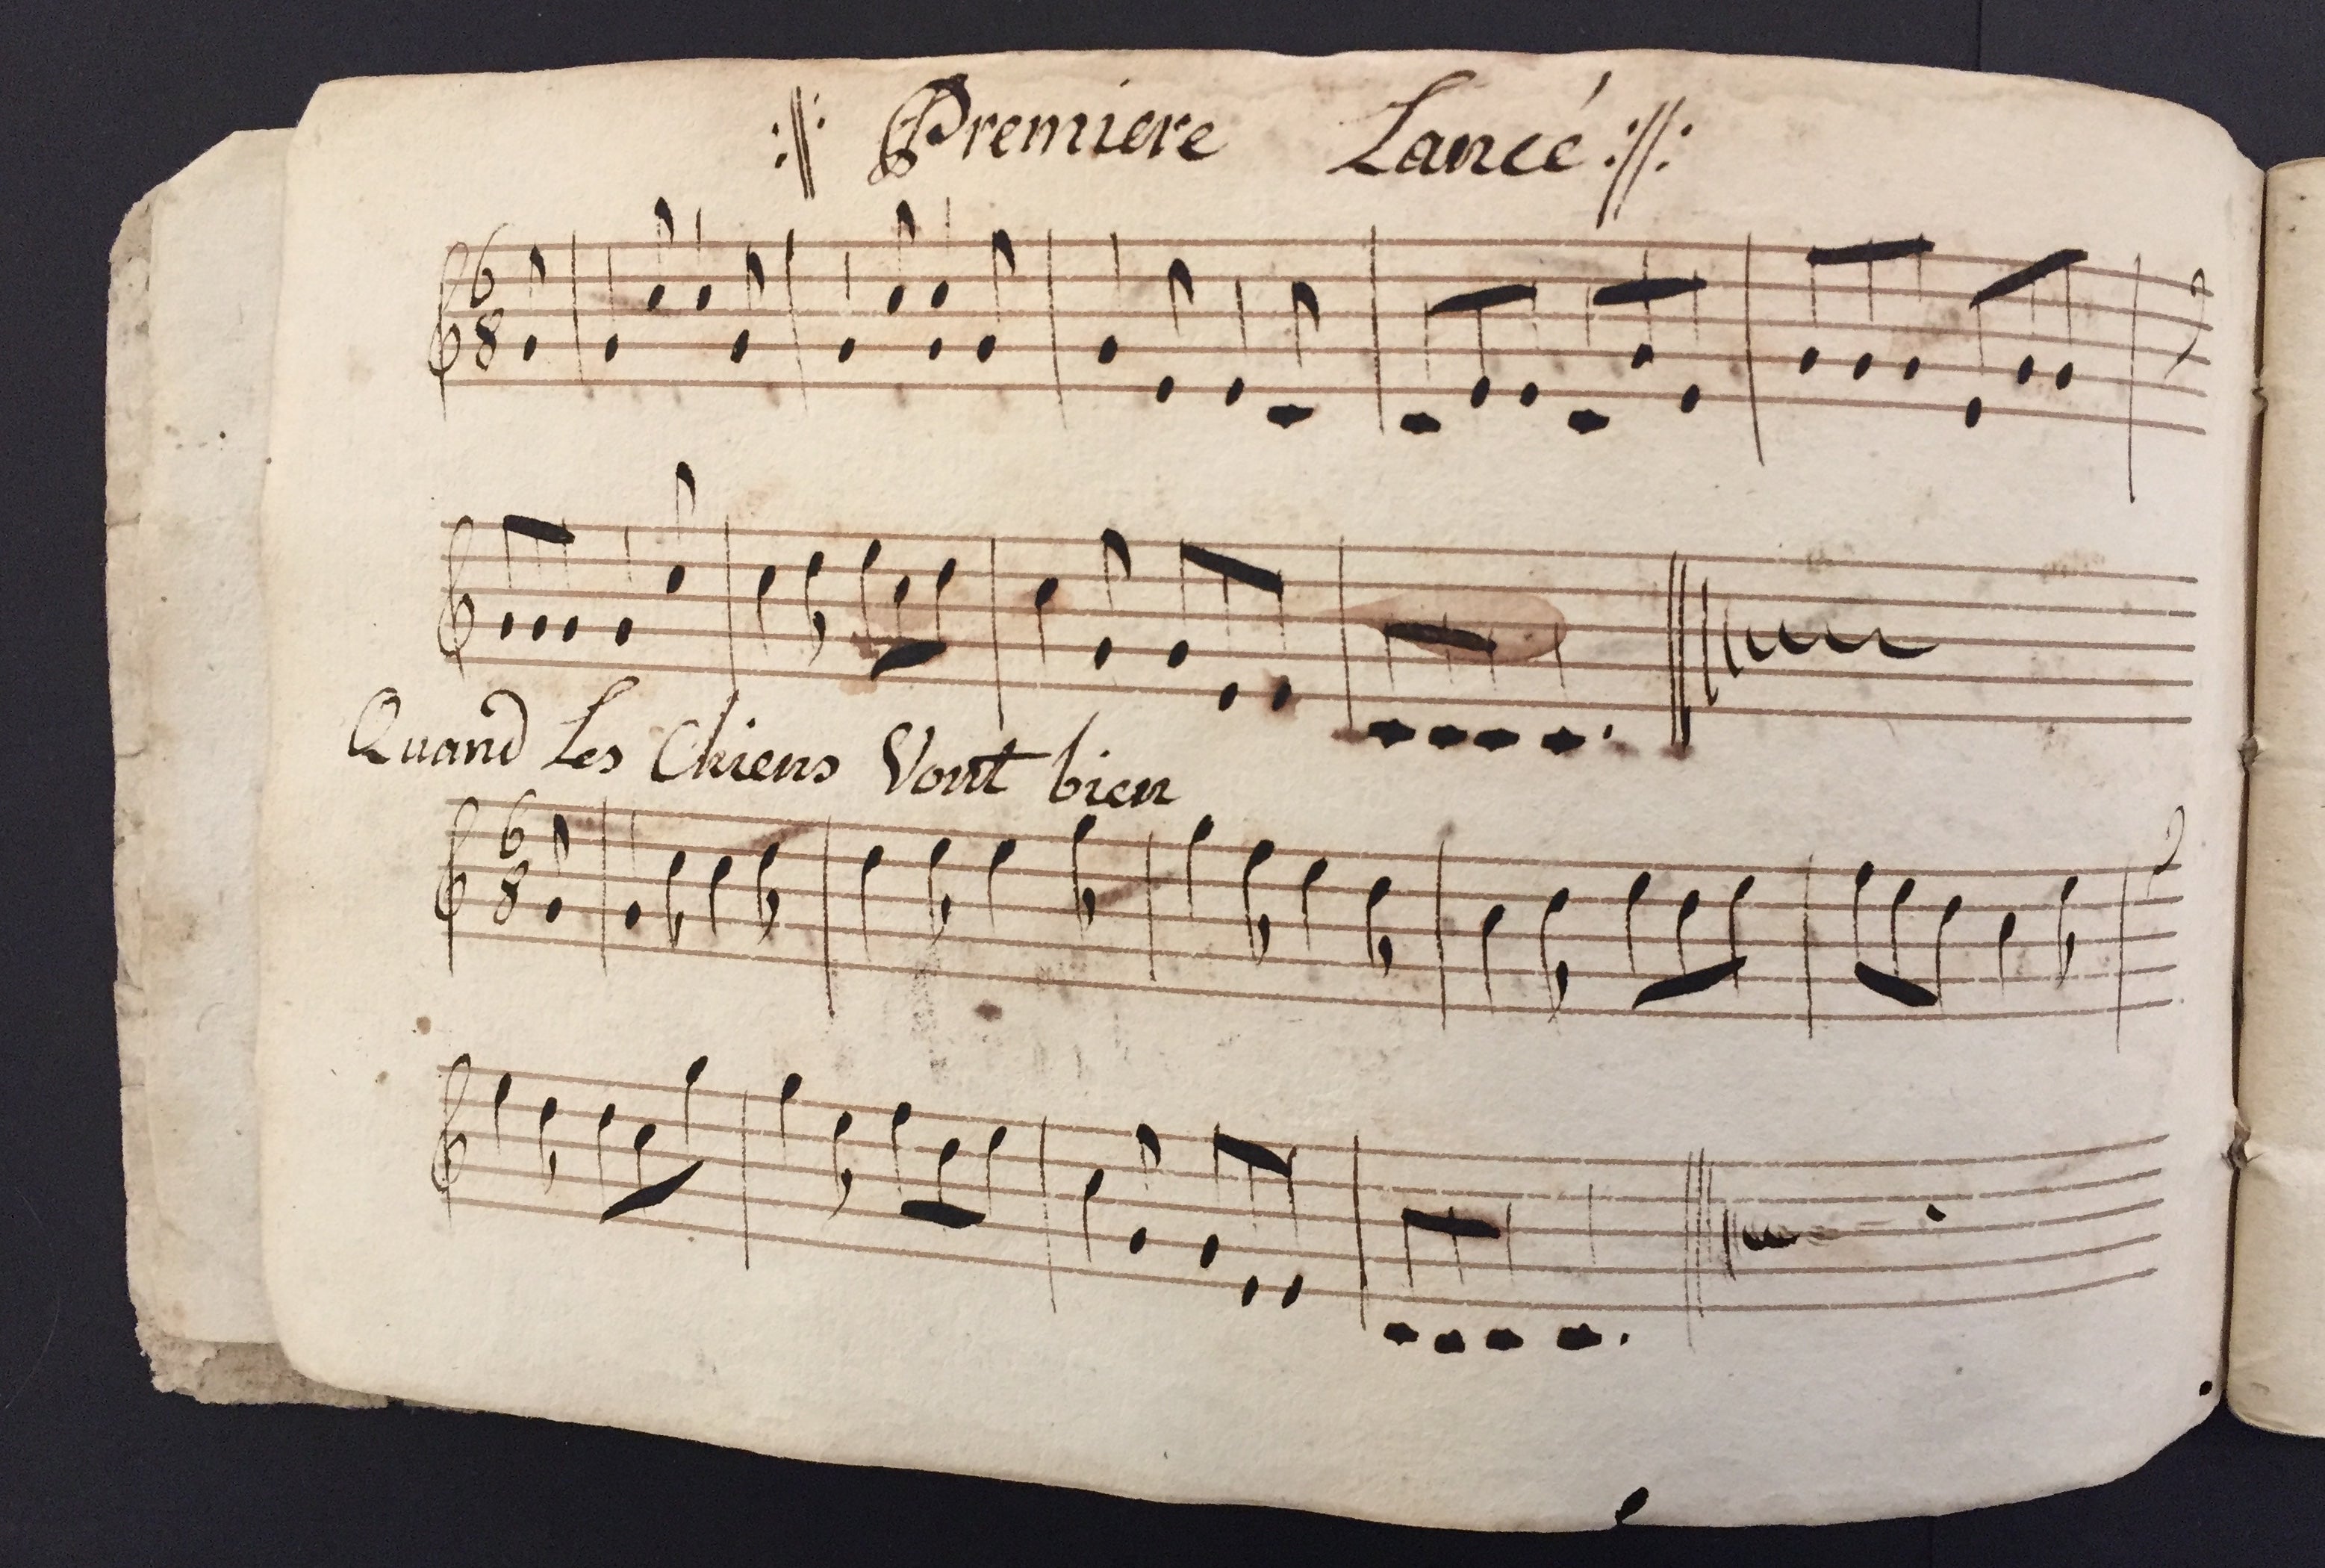 :||: Premiere Lancé :||:
6
8
Quand Les Chiens Vont bien
6
8